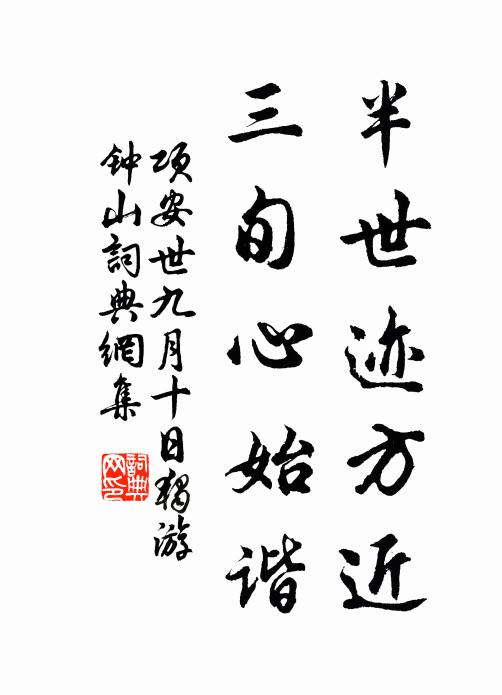 半世迹方近
三旬心始谐
项安世九月十日独游
钟山詞典網集
詞典网印